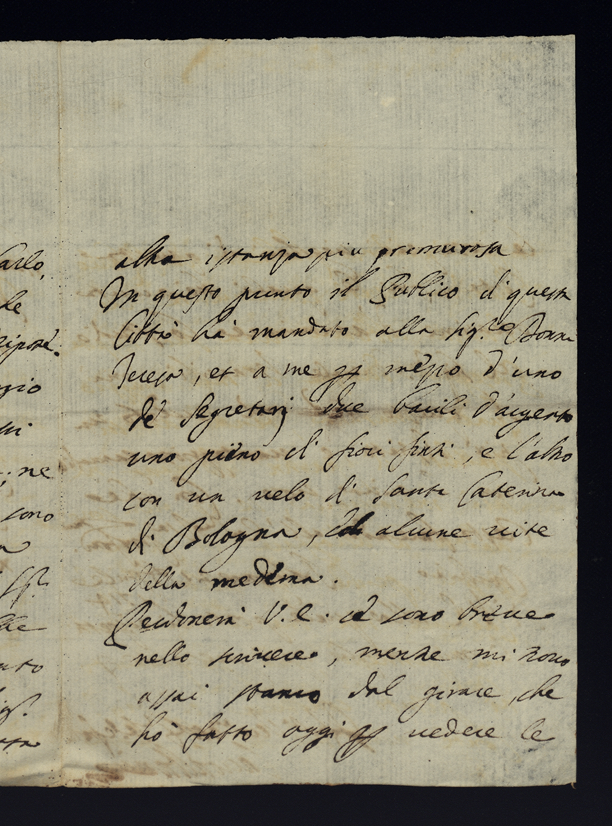 Carlo,
alla istanza piu premurosa
In questo punto il Publico di questa
Città hà mandato alla Sig.ra Donna
Teresa, et a me per mezzo d'uno
de' Segretarj due bacili d'argento
uno pieno di fiori finti, e l'altro
con un velo di Santa Caterina
di Bologna, ed alcune vite
della medema.
Perdonerà V.E. se sono breve
nello scrivere, mentre mi trovo
assai stanco dal girare, che
hò fatto oggi per vedere le
; ne
sono